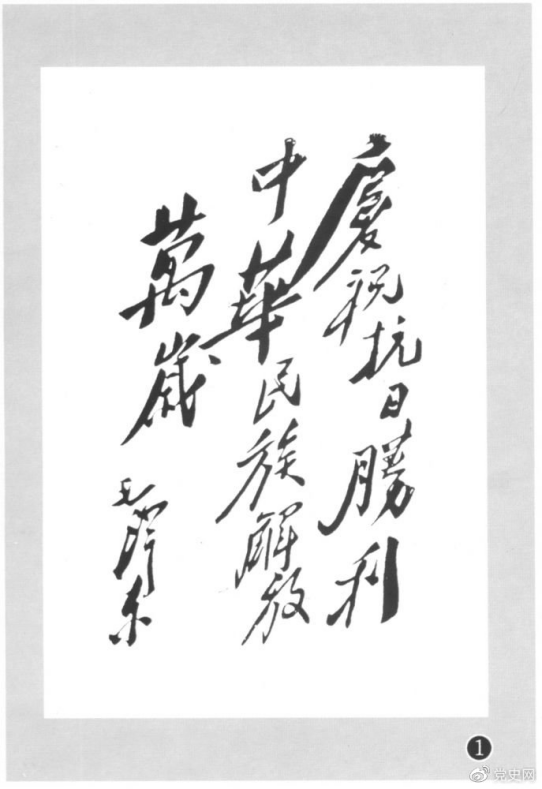 慶祝抗日勝利
中華民族解放
萬歲
毛澤东
❶
党史网